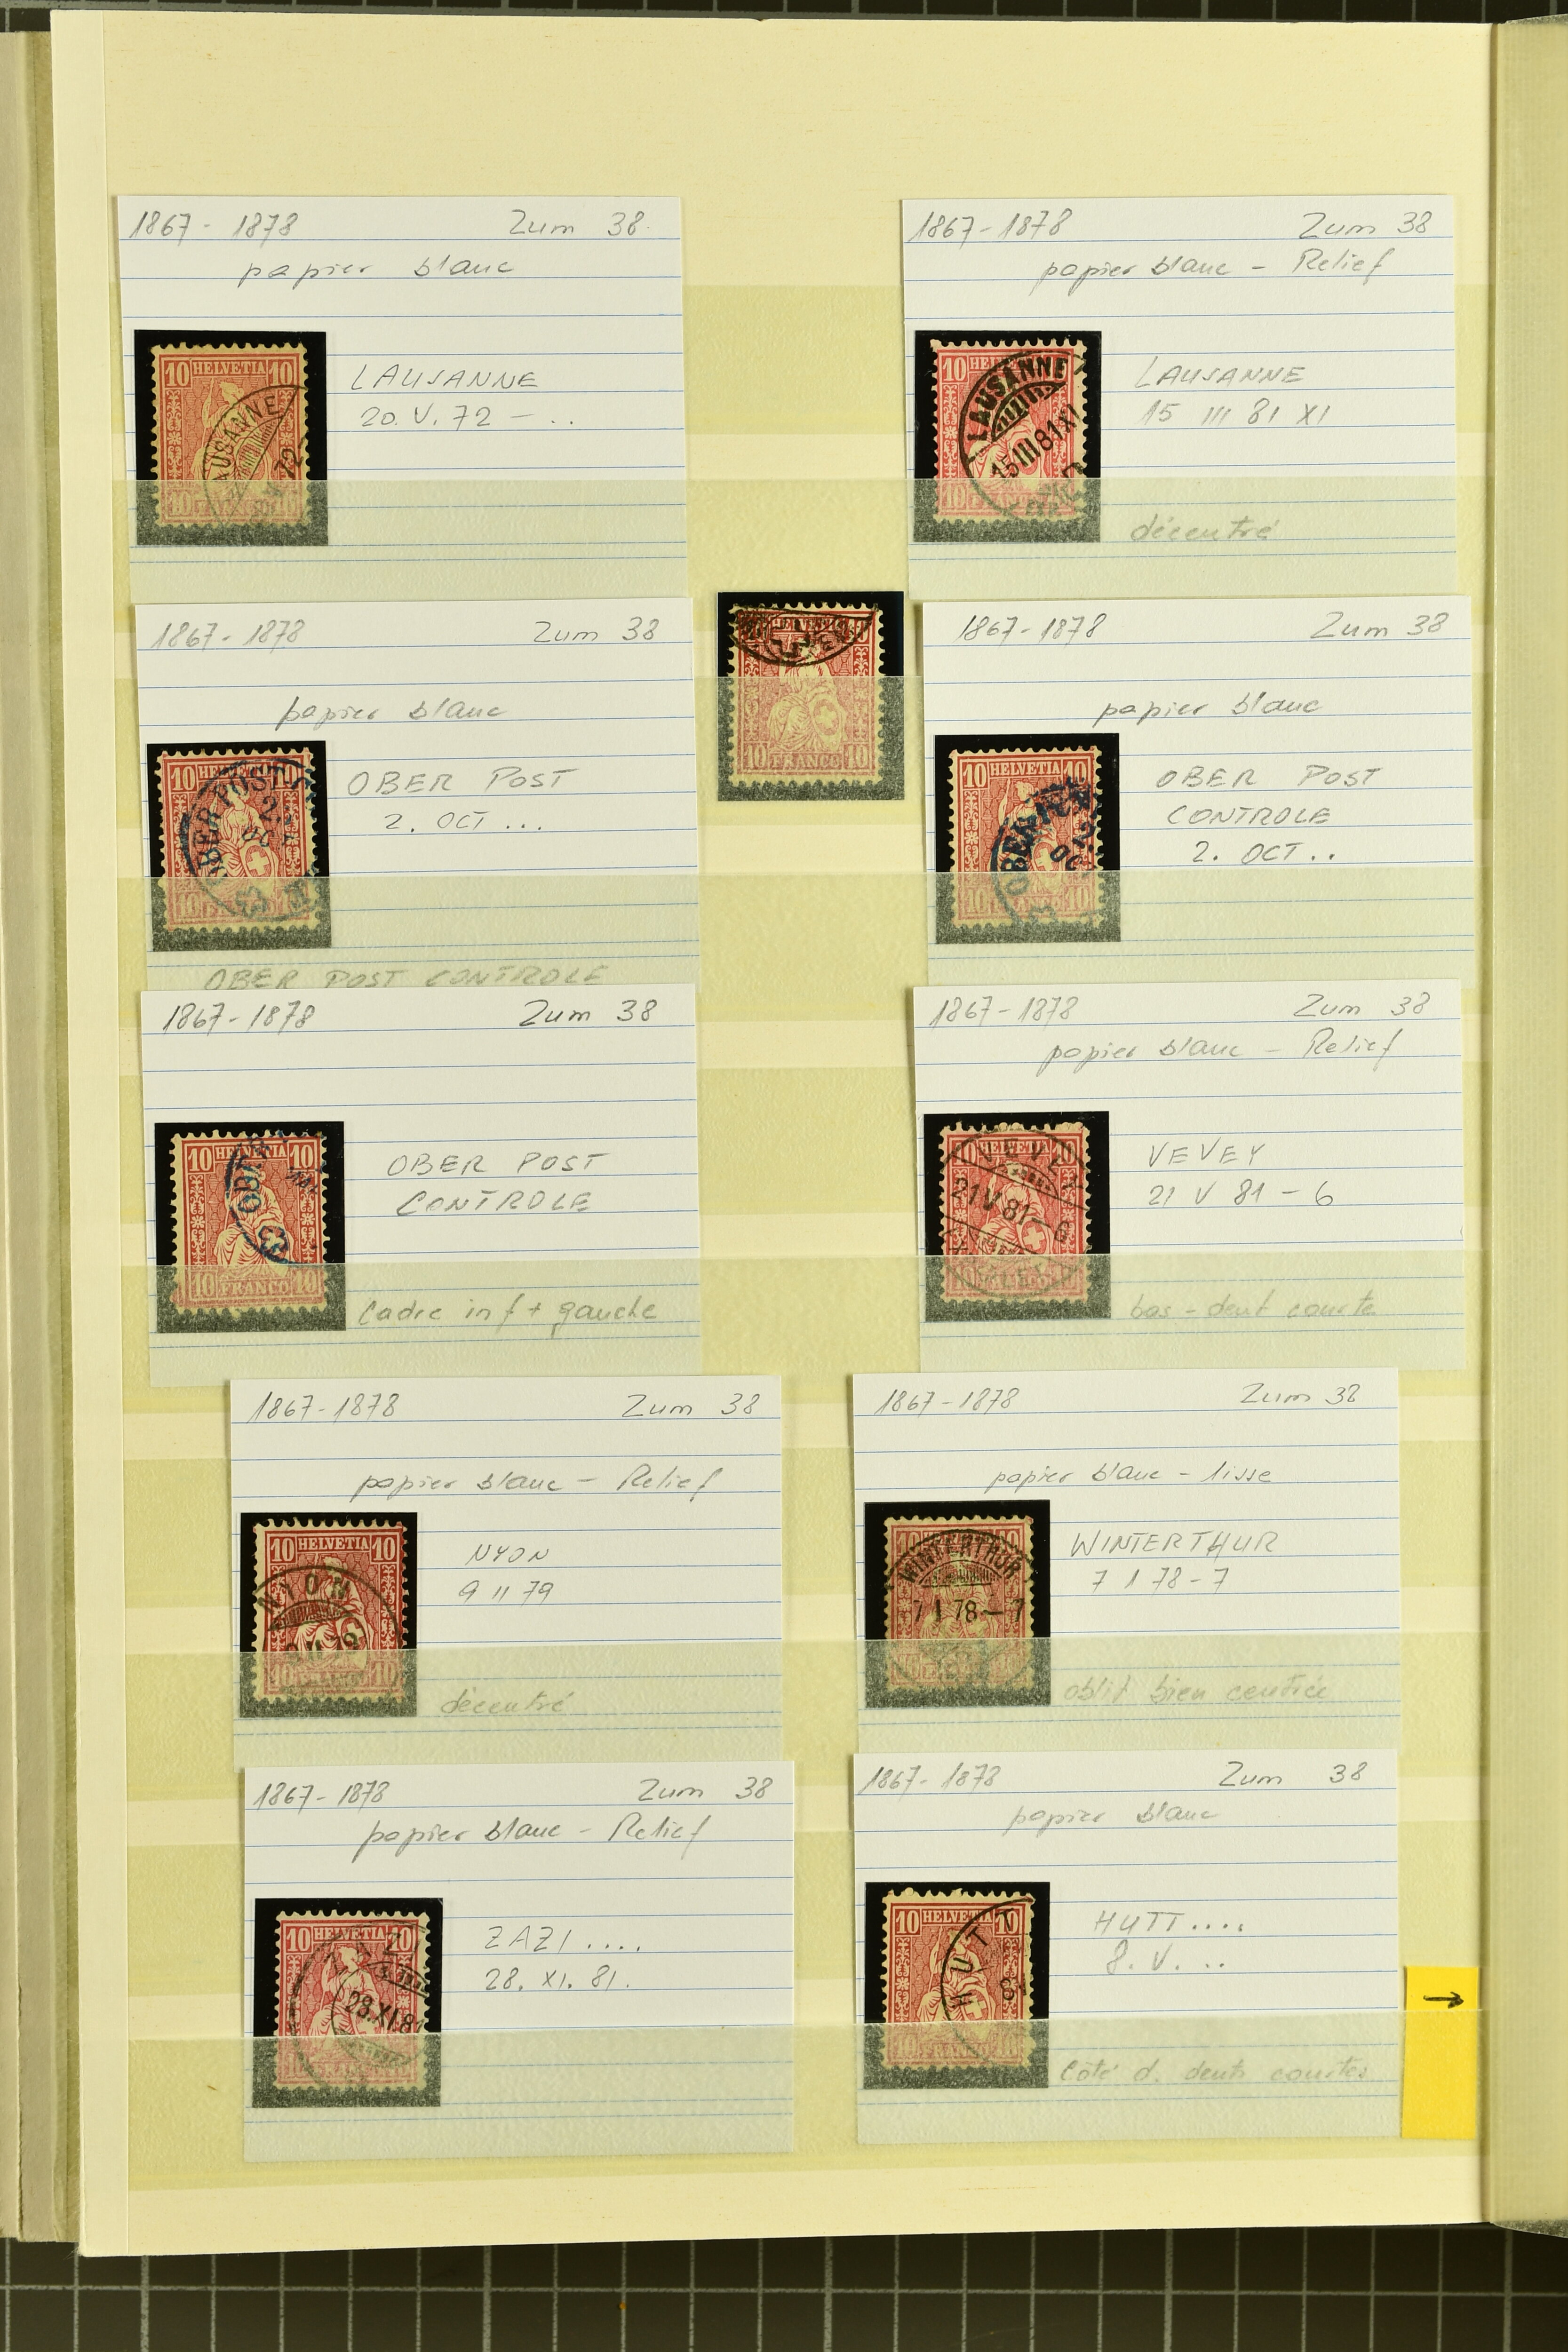 1867 - 1878 Zum 38.
papier blanc
10 HELVETIA 10
LAUSANNE
20. V. 72 - ..
USANNE
72
10 10
1867 - 1878 Zum 38
papier blanc - Relief
10 HELVETIA
LAUSANNE
15 III 81 XI
LAUSANNE
15 III 81 XI
10
décentré
1867 - 1878 Zum 38
papier blanc
10 HELVETIA 10
OBER POST
2. OCT ...
BER POST
2
OC
10 FRANCO 10
OBER POST CONTROLE
HELVETIA
10 FRANCO 10
1867 - 1878 Zum 38
papier blanc
10 HELVETIA 10
OBER POST
CONTROLE
2. OCT ..
OBER
2
OC
10 FRANCO 10
1867 - 1878 Zum 38
10 HELVETIA 10
OBER POST
CONTROLE
OBER
10 FRANCO 10
Cadre inf + gauche
1867 - 1878 Zum 38
papier blanc - Relief
HELVETIA 10
VEVEY
21 V 81 - 6
VEVEY
21 V 81 - 6
10
bas - dent courte
1867 - 1878 Zum 38
papier blanc - Relief
10 HELVETIA 10
NYON
9 II 79
NYON
10 10
décentré
1867 - 1878 Zum 38
papier blanc - lisse
WINTERTHUR
7 1 78 - 7
WINTERTHUR
7 I 78 - 7
oblit bien centrée
1867 - 1878 Zum 38
papier blanc - Relief
10 HELVETIA 10
ZAZI ....
28. XI. 81.
ZAZI
28.XI.81
10
1867 - 1878 Zum 38
papier blanc
10 HELVETIA 10
HUTT ....
8. V. ..
HUTT
10 FRANCO 10
Côté d. dents courtes
→